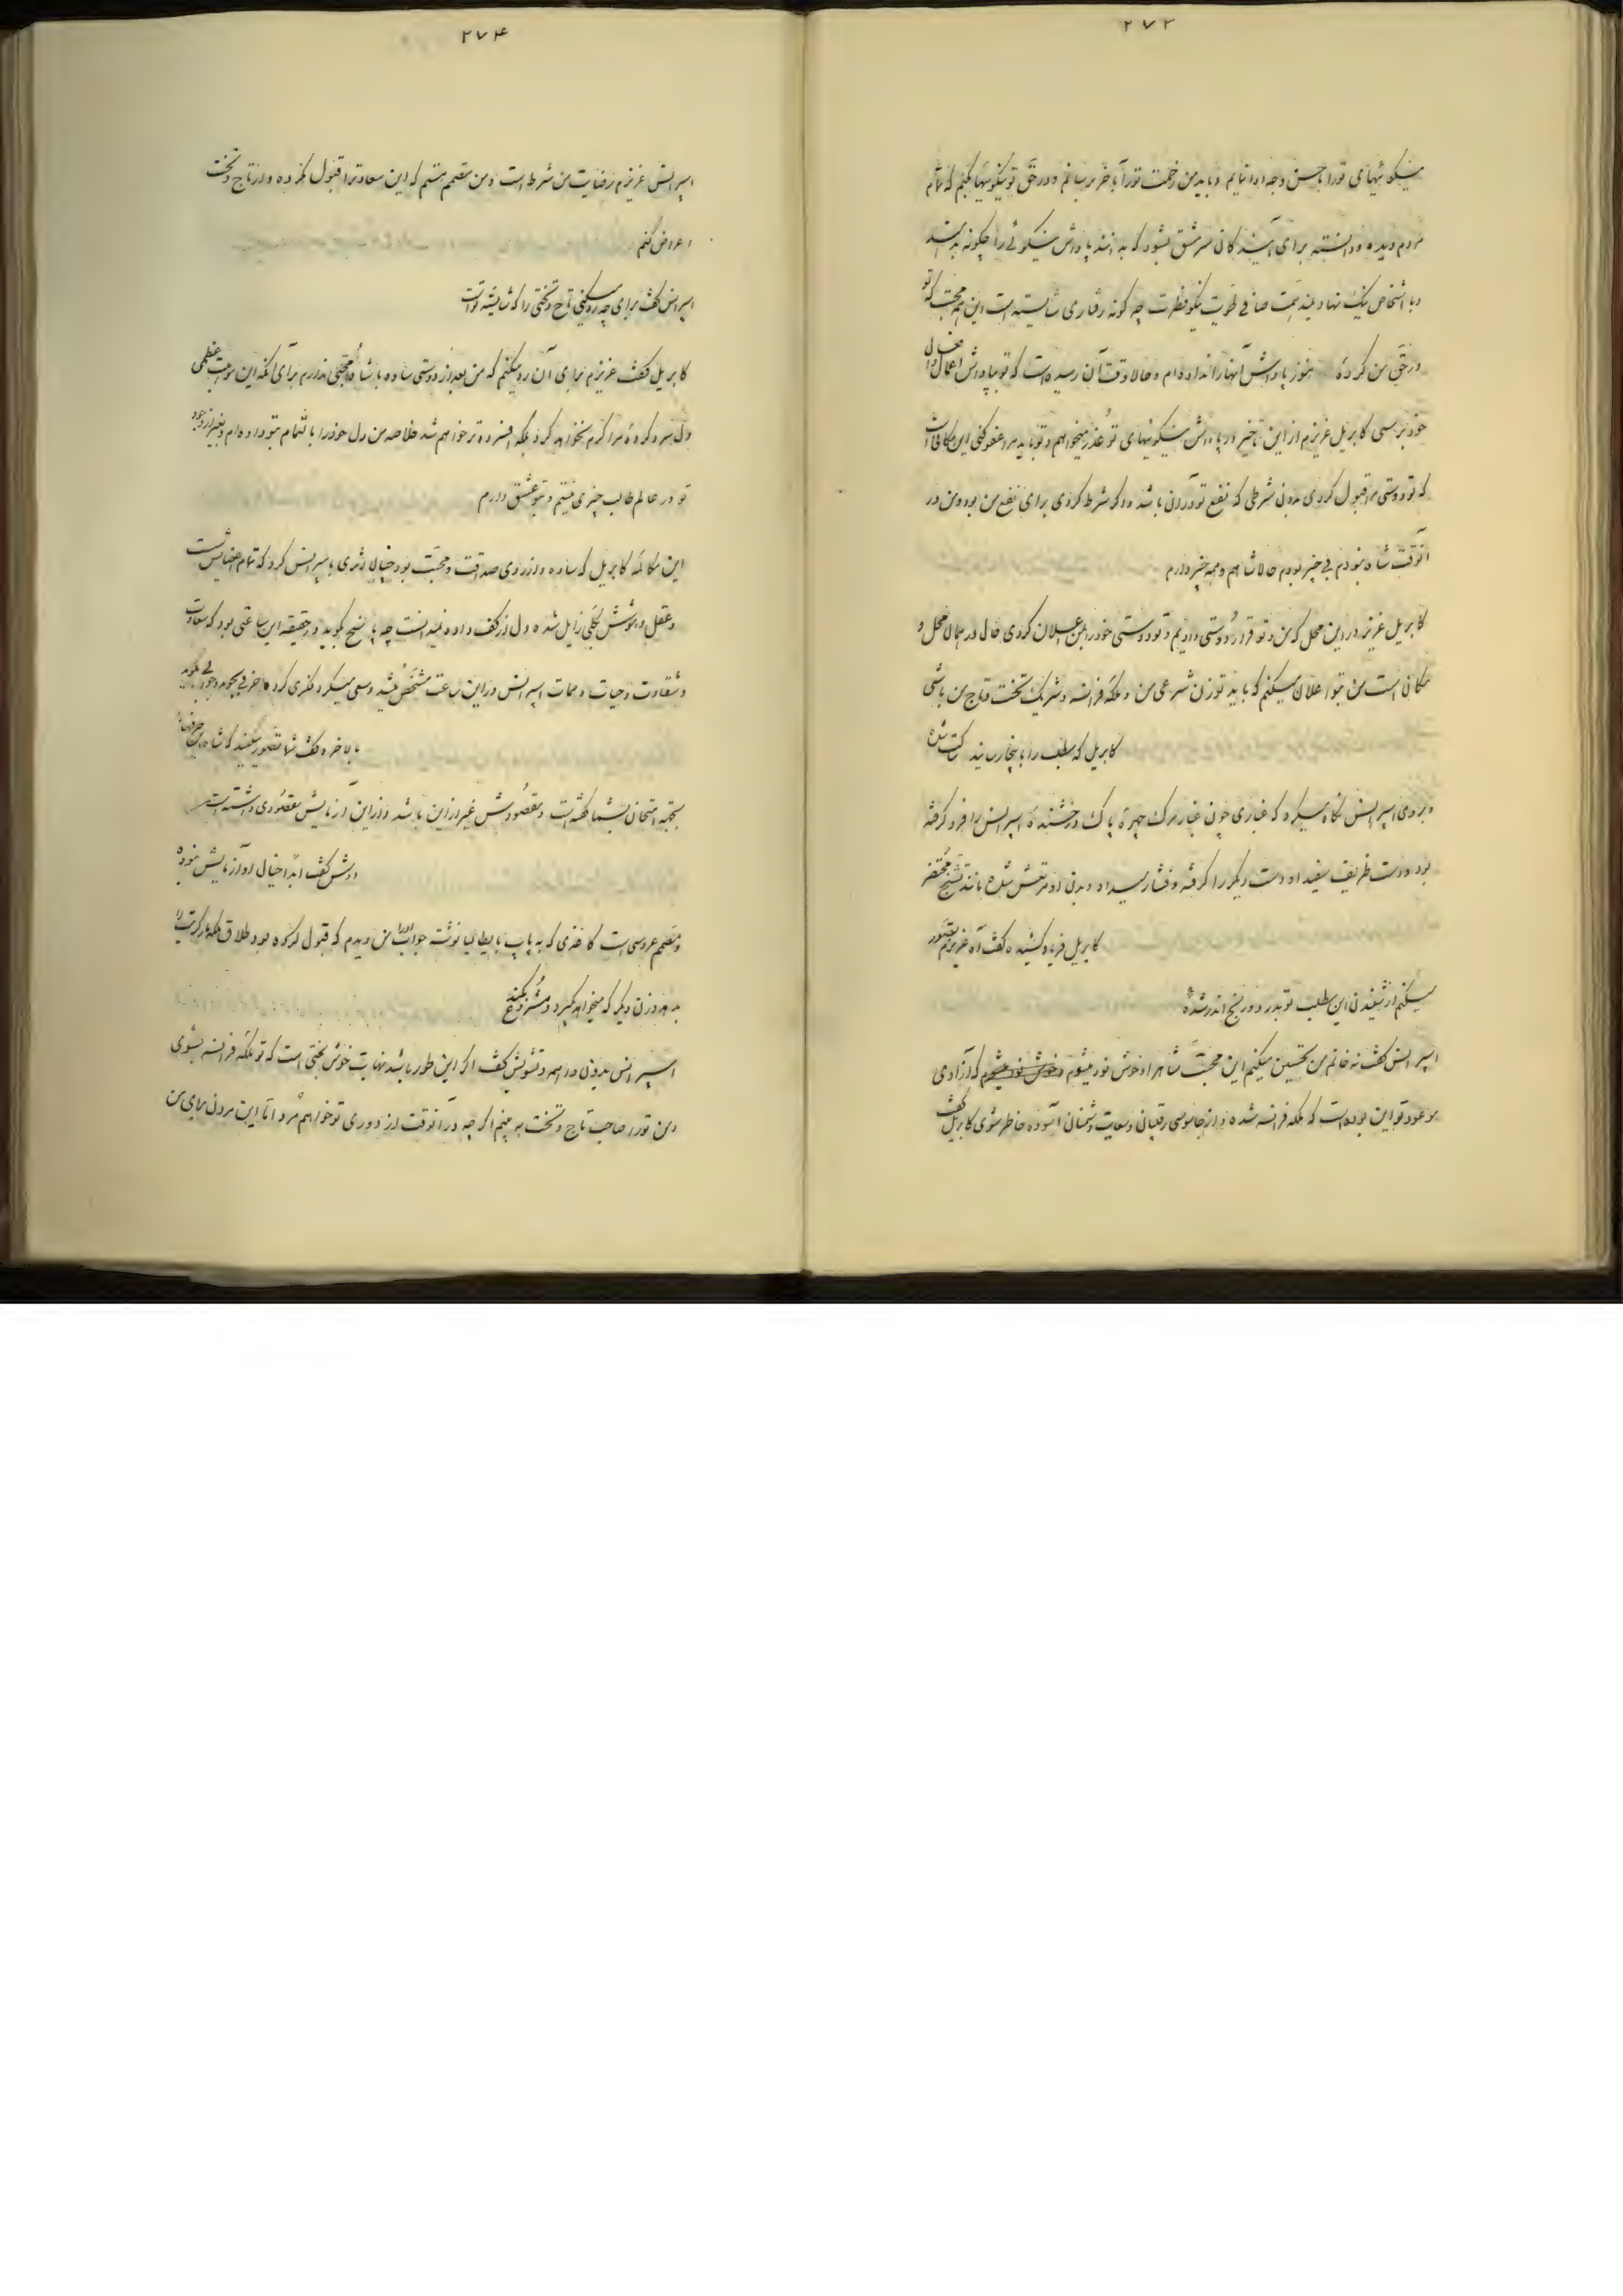 ۲۷۳
نیکوئیهای تو را باحسن وجه ادا نمایم و باید من زحمت تو را بآخر برسانم و در حق تو نیکوئیها کنم که تمام
مردم دیده و دانسته برای آیندگان سرمشق بشود که بدانند پاداش نیکوئی را چگونه بدهند
و با اشخاص نیک نهاد بلند همت صافی طویت نیکو فطرت چه گونه رفتاری شایسته است این همه محبت که تو
در حق من کرده هنوز پاداش آنها را نداده ام و حالا وقت آن رسیده است که تو بپاداش اعمال و افعال
خود برسی کابریل عزیزم از این تاخیر در پاداش نیکوئیهای تو عذر میخواهم و تو باید مرا عفو کنی این مکافات
که تو دوستی مرا قبول کردی بدون شرطی که نفع تو در آن باشد و اگر شرط کردی برای نفع من بود و من در
آنوقت شاه نبودم بی خبر بودم حالا شاهم و همه خبر دارم
کابریل عزیز در این محل که من و تو قرار دوستی دادیم و تو دوستی خود را بمن اعلان کردی حال در همان محل و
مکان است من بتو اعلان میکنم که باید تو زن شرعی من و ملکه فرانسه و شریک تخت و تاج من باشی
کابریل که مطلب را باینجا رسانید ساکت شده
و بروی اسپرانس نگاه میکرد که غباری چون غبار مرگ چهره پاک درخشنده اسپرانس را فرو گرفته
بود و دست ظریف سفید او دست دیگر را گرفته و فشار میداد و بدن او مرتعش شده مانند تشنج محتضر
کابریل فریاد کشیده گفت آه عزیزم تصور
میکنم از شنیدن این مطلب تو بدرد و رنج اندر شده
اسپرانس گفت نه خانم من تحسین میکنم این محبت شاهرا و خوش نود میشوم که از آزادی
موعود تو این بوده است که ملکه فرانسه شده و از جاسوسی رقیبان و سعایت دشمنان آسوده خاطر شوی کابریل گفت
۲۷۴
اسپرانس عزیزم رضایت من شرط است و من مصمم هستم که این سعادت را قبول نکرده و از تاج و تخت
اعراض کنم
اسپرانس گفت برای چه رد میکنی تاج و تختی را که شایسته تو است
کابریل گفت عزیزم برای آن رد میکنم که من بعد از دوستی ساده با شاه محبتی ندارم برای آنکه این موهبت عظمی
دل سرد کرده مرا گرم نخواهد کرد بلکه افسرده تر خواهم شد خلاصه من دل خود را بالتمام بتو داده ام و بغیر از وجود
تو در عالم طالب چیزی نیستم و بتو عشق دارم
این مکالمه کابریل که ساده و از روی صداقت و محبت بود چنان اثری باسپرانس کرد که تمام اعضایش سست
و عقل و هوشش بکلی زایل شده دل از کف داده نمیدانست چه پاسخ گوید در حقیقه این ساعتی بود که سعادت
و شقاوت و حیات و ممات اسپرانس در این ساعت مشخص میشد و سعی میکرد فکری کرده حرفی بجوید و جوابی بگوید
بالاخره گفت شما تصور نمیکنید که شاه این حرفها
بجهة امتحان بشما گفته است و مقصودش غیر از این باشد و از این آزمایش مقصودی داشته است
دوش گفت ابدا خیال او آزمایش نبوده
و مصمم عروسی است کاغذی که به پاپ بایطالیا نوشته جواب او را من دیدم که قبول کرده بود طلاق ملکه مارگریت را
بدهد و زن دیگر که میخواهد بگیرد و مشروع بکند
اسپرانس بدون واهمه و تشویش گفت اگر این طور باشد نهایت خوش بختی است که تو ملکه فرانسه بشوی
و من تو را صاحب تاج و تخت به بینم اگر چه در آنوقت از دوری تو خواهم مرد اما این مردن برای من